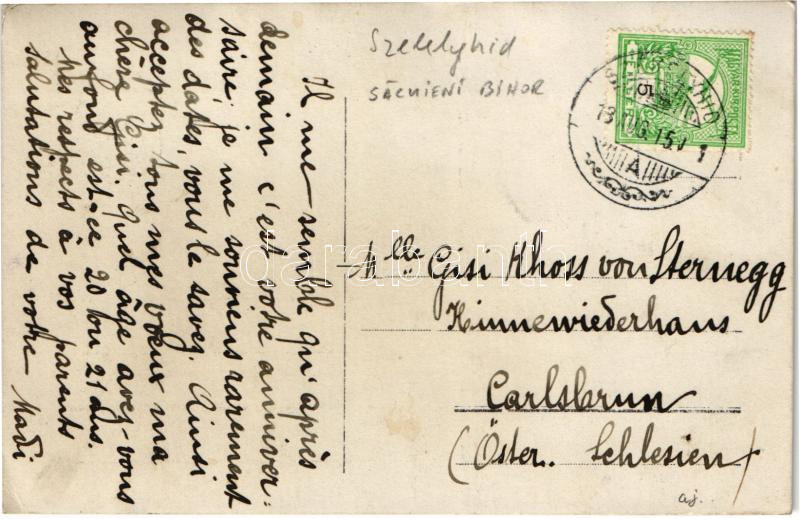 Il me semble qu'après
demain c'est votre anniver:
saire, je me souviens rarement
des dates, vous le savez. Ainsi
acceptez tous mes vœux ma
chère Gisi. Quel âge avez-vous
est-ce 20 ou 21 ans.
Mes respects à vos parents
salutations de votre Madi
Szekelyhid
SĂCUIENI BIHOR
Mlle Gisi Khoss von Sternegg
Hinnewiederhaus
Carlsbrun
(Öster. Schlesien)
darabanth
A
5
aj.